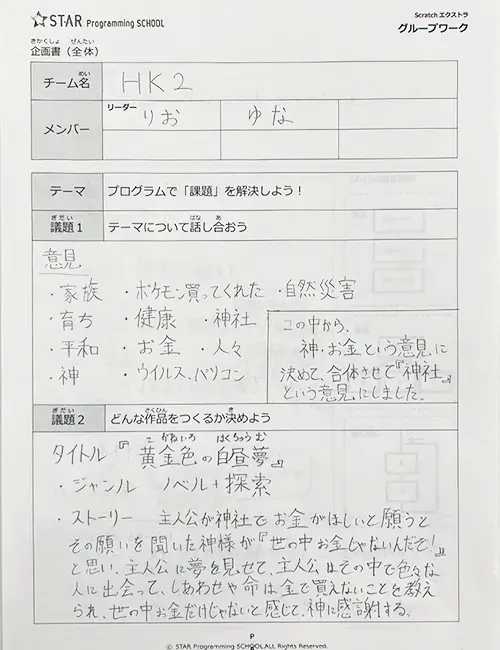 STAR Programming SCHOOL
Scratch エクストラ
グループワーク
きかくしょ ぜんたい
企画書（全体）
めい
チーム名
HK2
メンバー
リーダー
りお
ゆな
テーマ
プログラムで「課題」を解決しよう！
ぎだい
議題1
はな あ
テーマについて話し合おう
意見
・家族 ・ポケモン買ってくれた ・自然災害
・育ち ・健康 ・神社
・平和 ・お金 ・人々
・神 ・ウイルス、パソコン
この中から、
神・お金という意見に
決めて、合体させて『神社』
という意見にしました。
ぎだい
議題2
さくひん き
どんな作品をつくるか決めよう
こがねいろ はくちゅうむ
タイトル『黄金色の白昼夢』
・ジャンル ノベル+探索
・ストーリー 主人公が神社でお金がほしいと願うと
その願いを聞いた神様が『世の中お金じゃないんだぞ!』
と思い、主人公に夢を見せて、主人公はその中で色々な
人に出会って、しあわせや命は金で買えないことを教え
られ、世の中お金だけじゃないと感じて、神に感謝する。
P
© STAR Programming SCHOOL.ALL Rights Reserved.